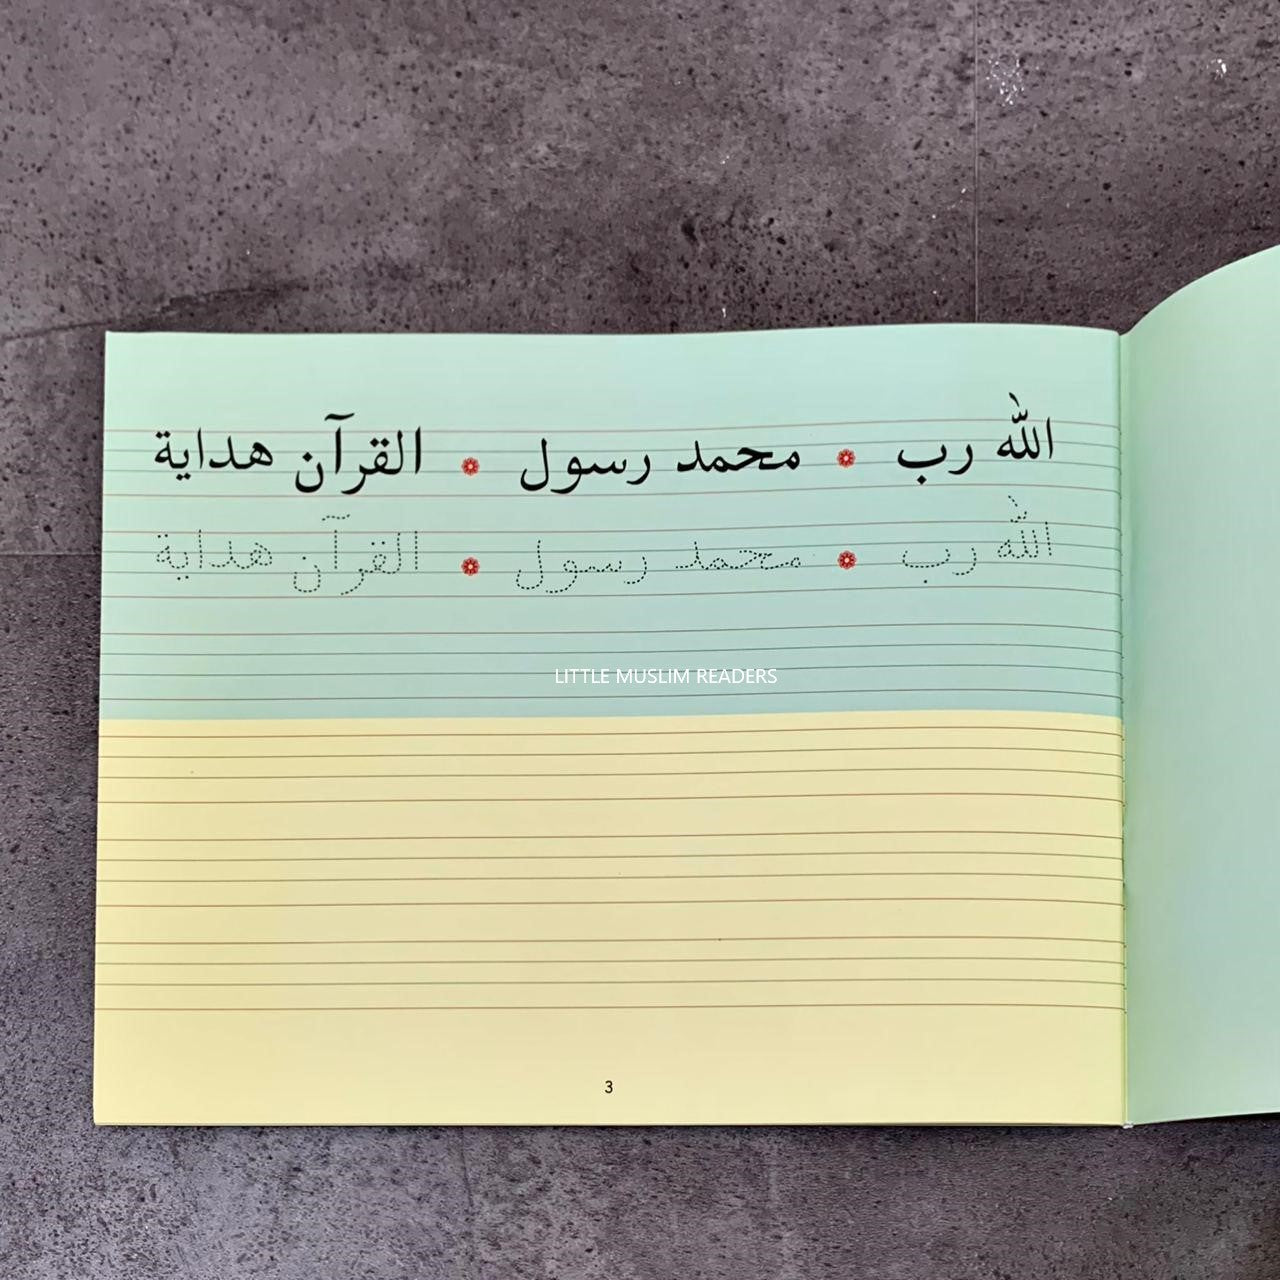 الله رب ❁ محمد رسول ❁ القرآن هداية
الله رب ❁ محمد رسول ❁ القرآن هداية
LITTLE MUSLIM READERS
3